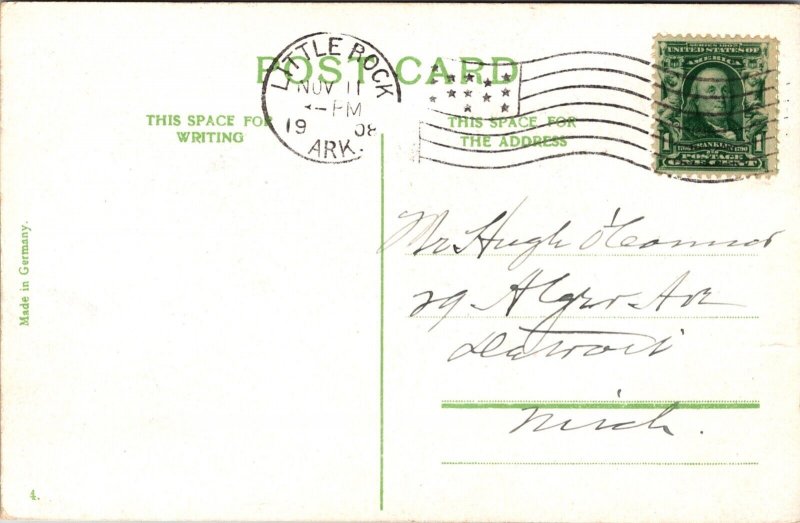 POST CARD
LITTLE ROCK
NOV 11
-PM
19 08
ARK.
THIS SPACE FOR
WRITING
THIS SPACE FOR
THE ADDRESS
SERIES 1902
UNITED STATES OF
AMERICA
1 1706 FRANKLIN 1790 1
POSTAGE
ONE CENT
Mr Hugh O'Connor
29 Ave
Detroit
Mich.
Made in Germany.
4.